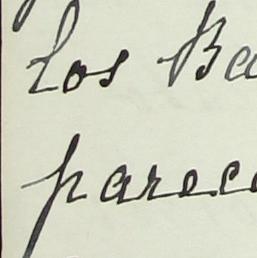 Los Ba
parece